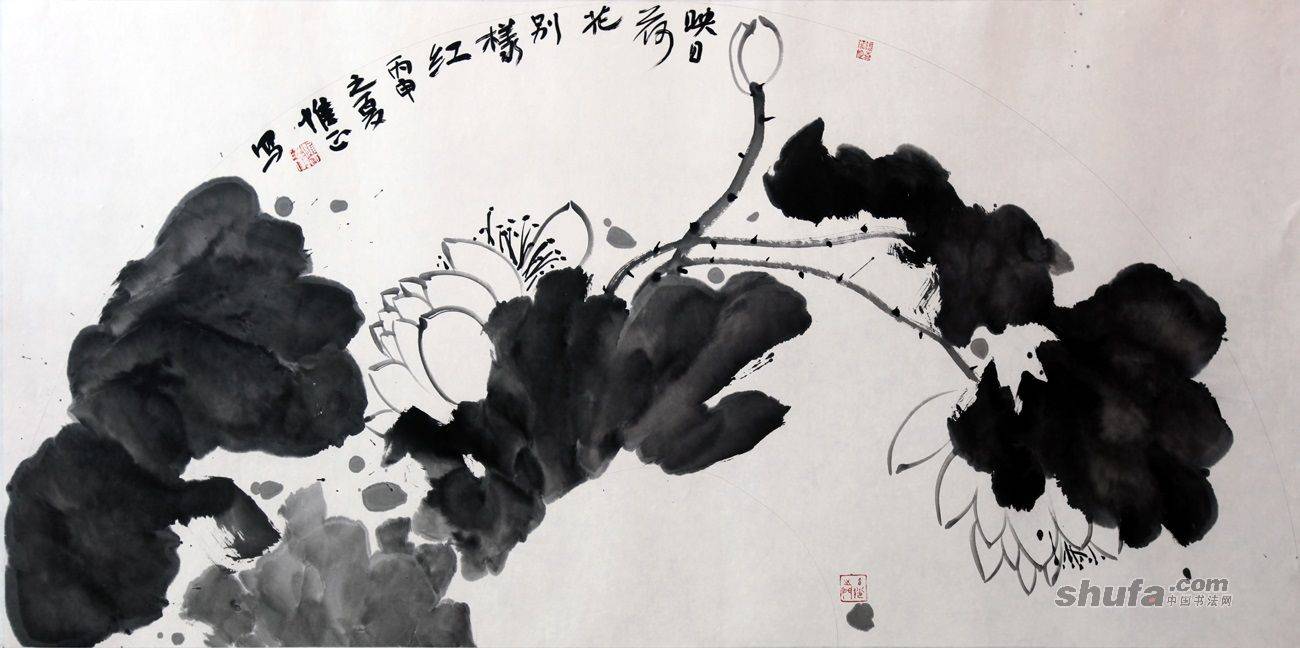 映日荷花别樣红
丙申之夏
惟正写
shufa.com
中国书法网